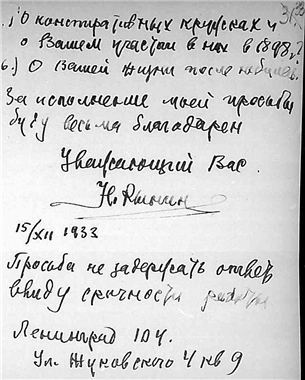 .) О конспиративных кружках и
о Вашем участии в них в 1898, г
б.) О Вашей жизни после
За исполнение моей просьбы
буду весьма благодарен
Уважающий Вас.
Н. Рынин
15/XII 1933
Просьба не задержать ответ
ввиду срочности работы
Ленинград 104.
Ул. Жуковского 4 кв 9